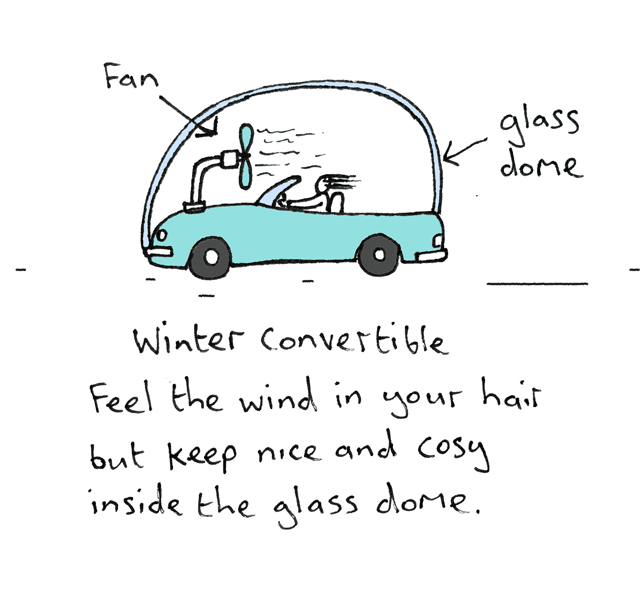 Fan
glass
dome
Winter Convertible
Feel the wind in your hair
but keep nice and cosy
inside the glass dome.